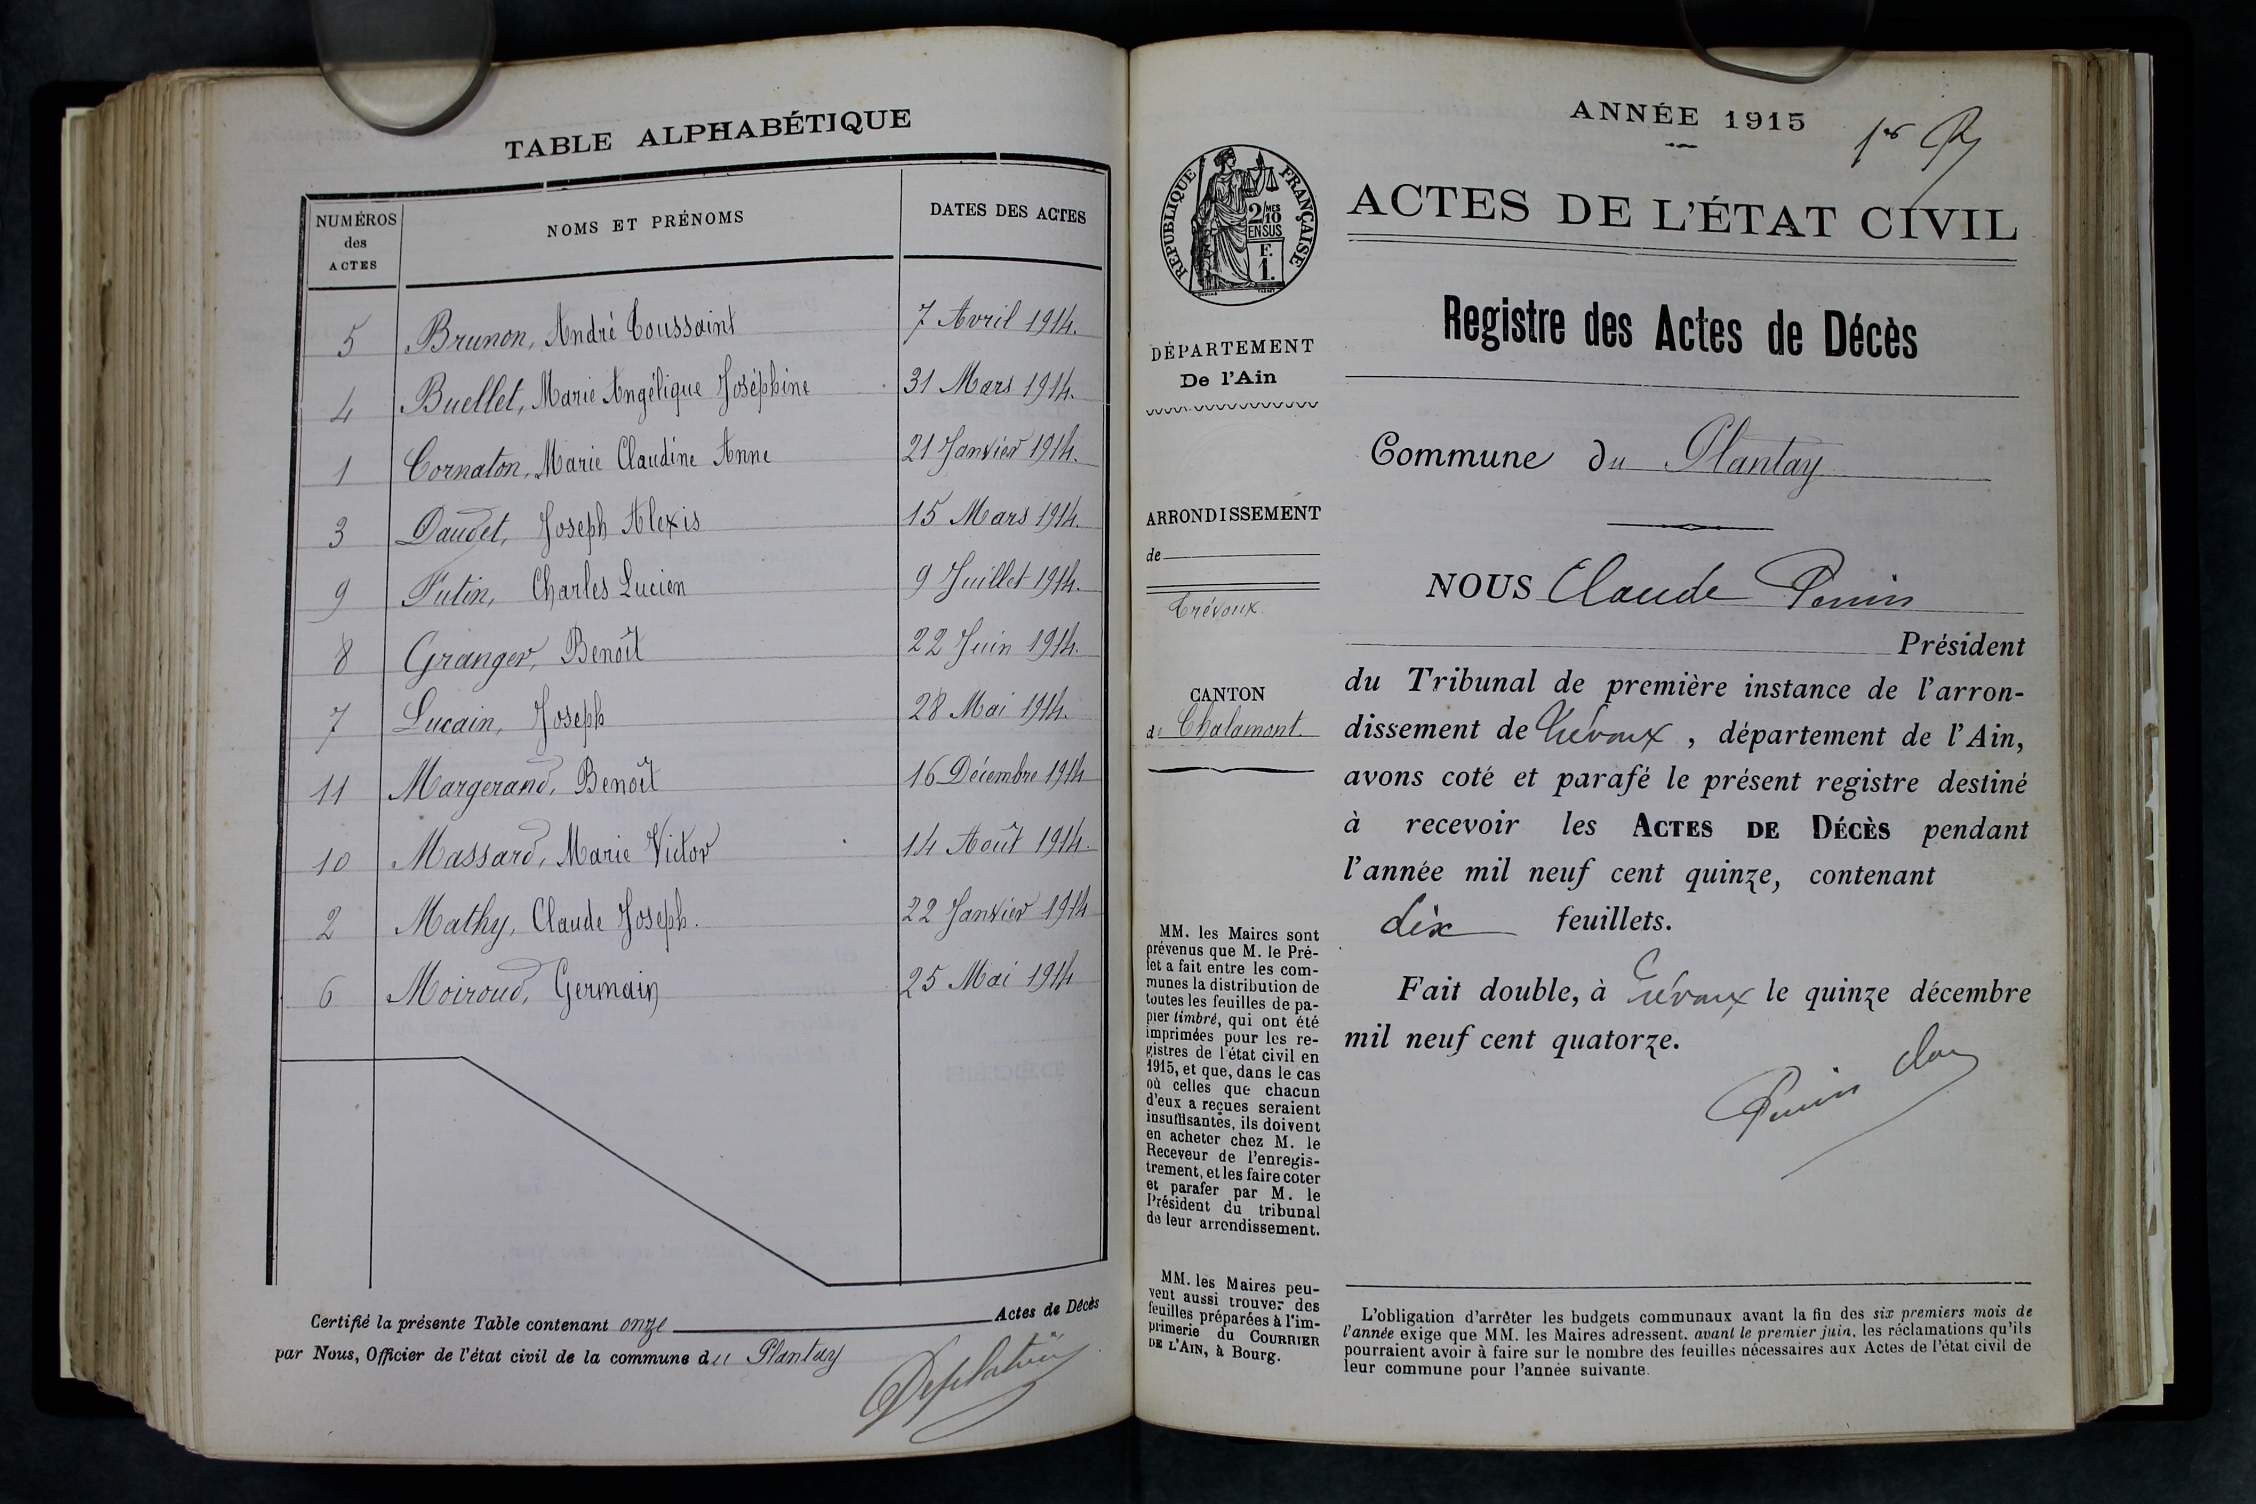 TABLE ALPHABÉTIQUE
NUMÉROS des ACTES
NOMS ET PRÉNOMS
DATES DES ACTES
5 Brunon, André Toussaint 7 Avril 1914.
4 Buellet, Marie Angélique Joséphine 31 Mars 1914.
1 Cornaton, Marie Claudine Anne 21 Janvier 1914.
3 Daudet, Joseph Alexis 15 Mars 1914.
9 Futin, Charles Lucien 9 Juillet 1914.
8 Granger, Benoît 22 Juin 1914.
7 Lucain, Joseph 28 Mai 1914.
11 Margerand, Benoît 16 Décembre 1914
10 Massard, Marie Victor 14 Août 1914.
2 Mathy, Claude Joseph. 22 Janvier 1914
6 Moiroud, Germain 25 Mai 1914
Certifié la présente Table contenant onze Actes de Décès
par Nous, Officier de l'état civil de la commune du Plantay
ANNÉE 1915
1er
RÉPUBLIQUE FRANÇAISE
2/10 MES
EN SUS
F.
1.
ACTES DE L'ÉTAT CIVIL
Registre des Actes de Décès
DÉPARTEMENT
De l'Ain
Commune du Plantay
ARRONDISSEMENT
de
Trévoux
CANTON
de Chalamont.
NOUS Claude Perrin
Président
du Tribunal de première instance de l'arron-
dissement de Trévoux, département de l'Ain,
avons coté et parafé le présent registre destiné
à recevoir les ACTES DE DÉCÈS pendant
l'année mil neuf cent quinze, contenant
dix feuillets.
Fait double, à Trévoux le quinze décembre
mil neuf cent quatorze.
Perrin Clau
MM. les Maires sont
prévenus que M. le Pré-
fet a fait entre les com-
munes la distribution de
toutes les feuilles de pa-
pier timbré, qui ont été
imprimées pour les re-
gistres de l'état civil en
1915, et que, dans le cas
où celles que chacun
d'eux a reçues seraient
insuffisantes, ils doivent
en acheter chez M. le
Receveur de l'enregis-
trement, et les faire coter
et parafer par M. le
Président du tribunal
de leur arrondissement.
MM. les Maires peu-
vent aussi trouver des
feuilles préparées à l'im-
primerie du COURRIER
DE L'AIN, à Bourg.
L'obligation d'arrêter les budgets communaux avant la fin des six premiers mois de
l'année exige que MM. les Maires adressent, avant le premier juin, les réclamations qu'ils
pourraient avoir à faire sur le nombre des feuilles nécessaires aux Actes de l'état civil de
leur commune pour l'année suivante.